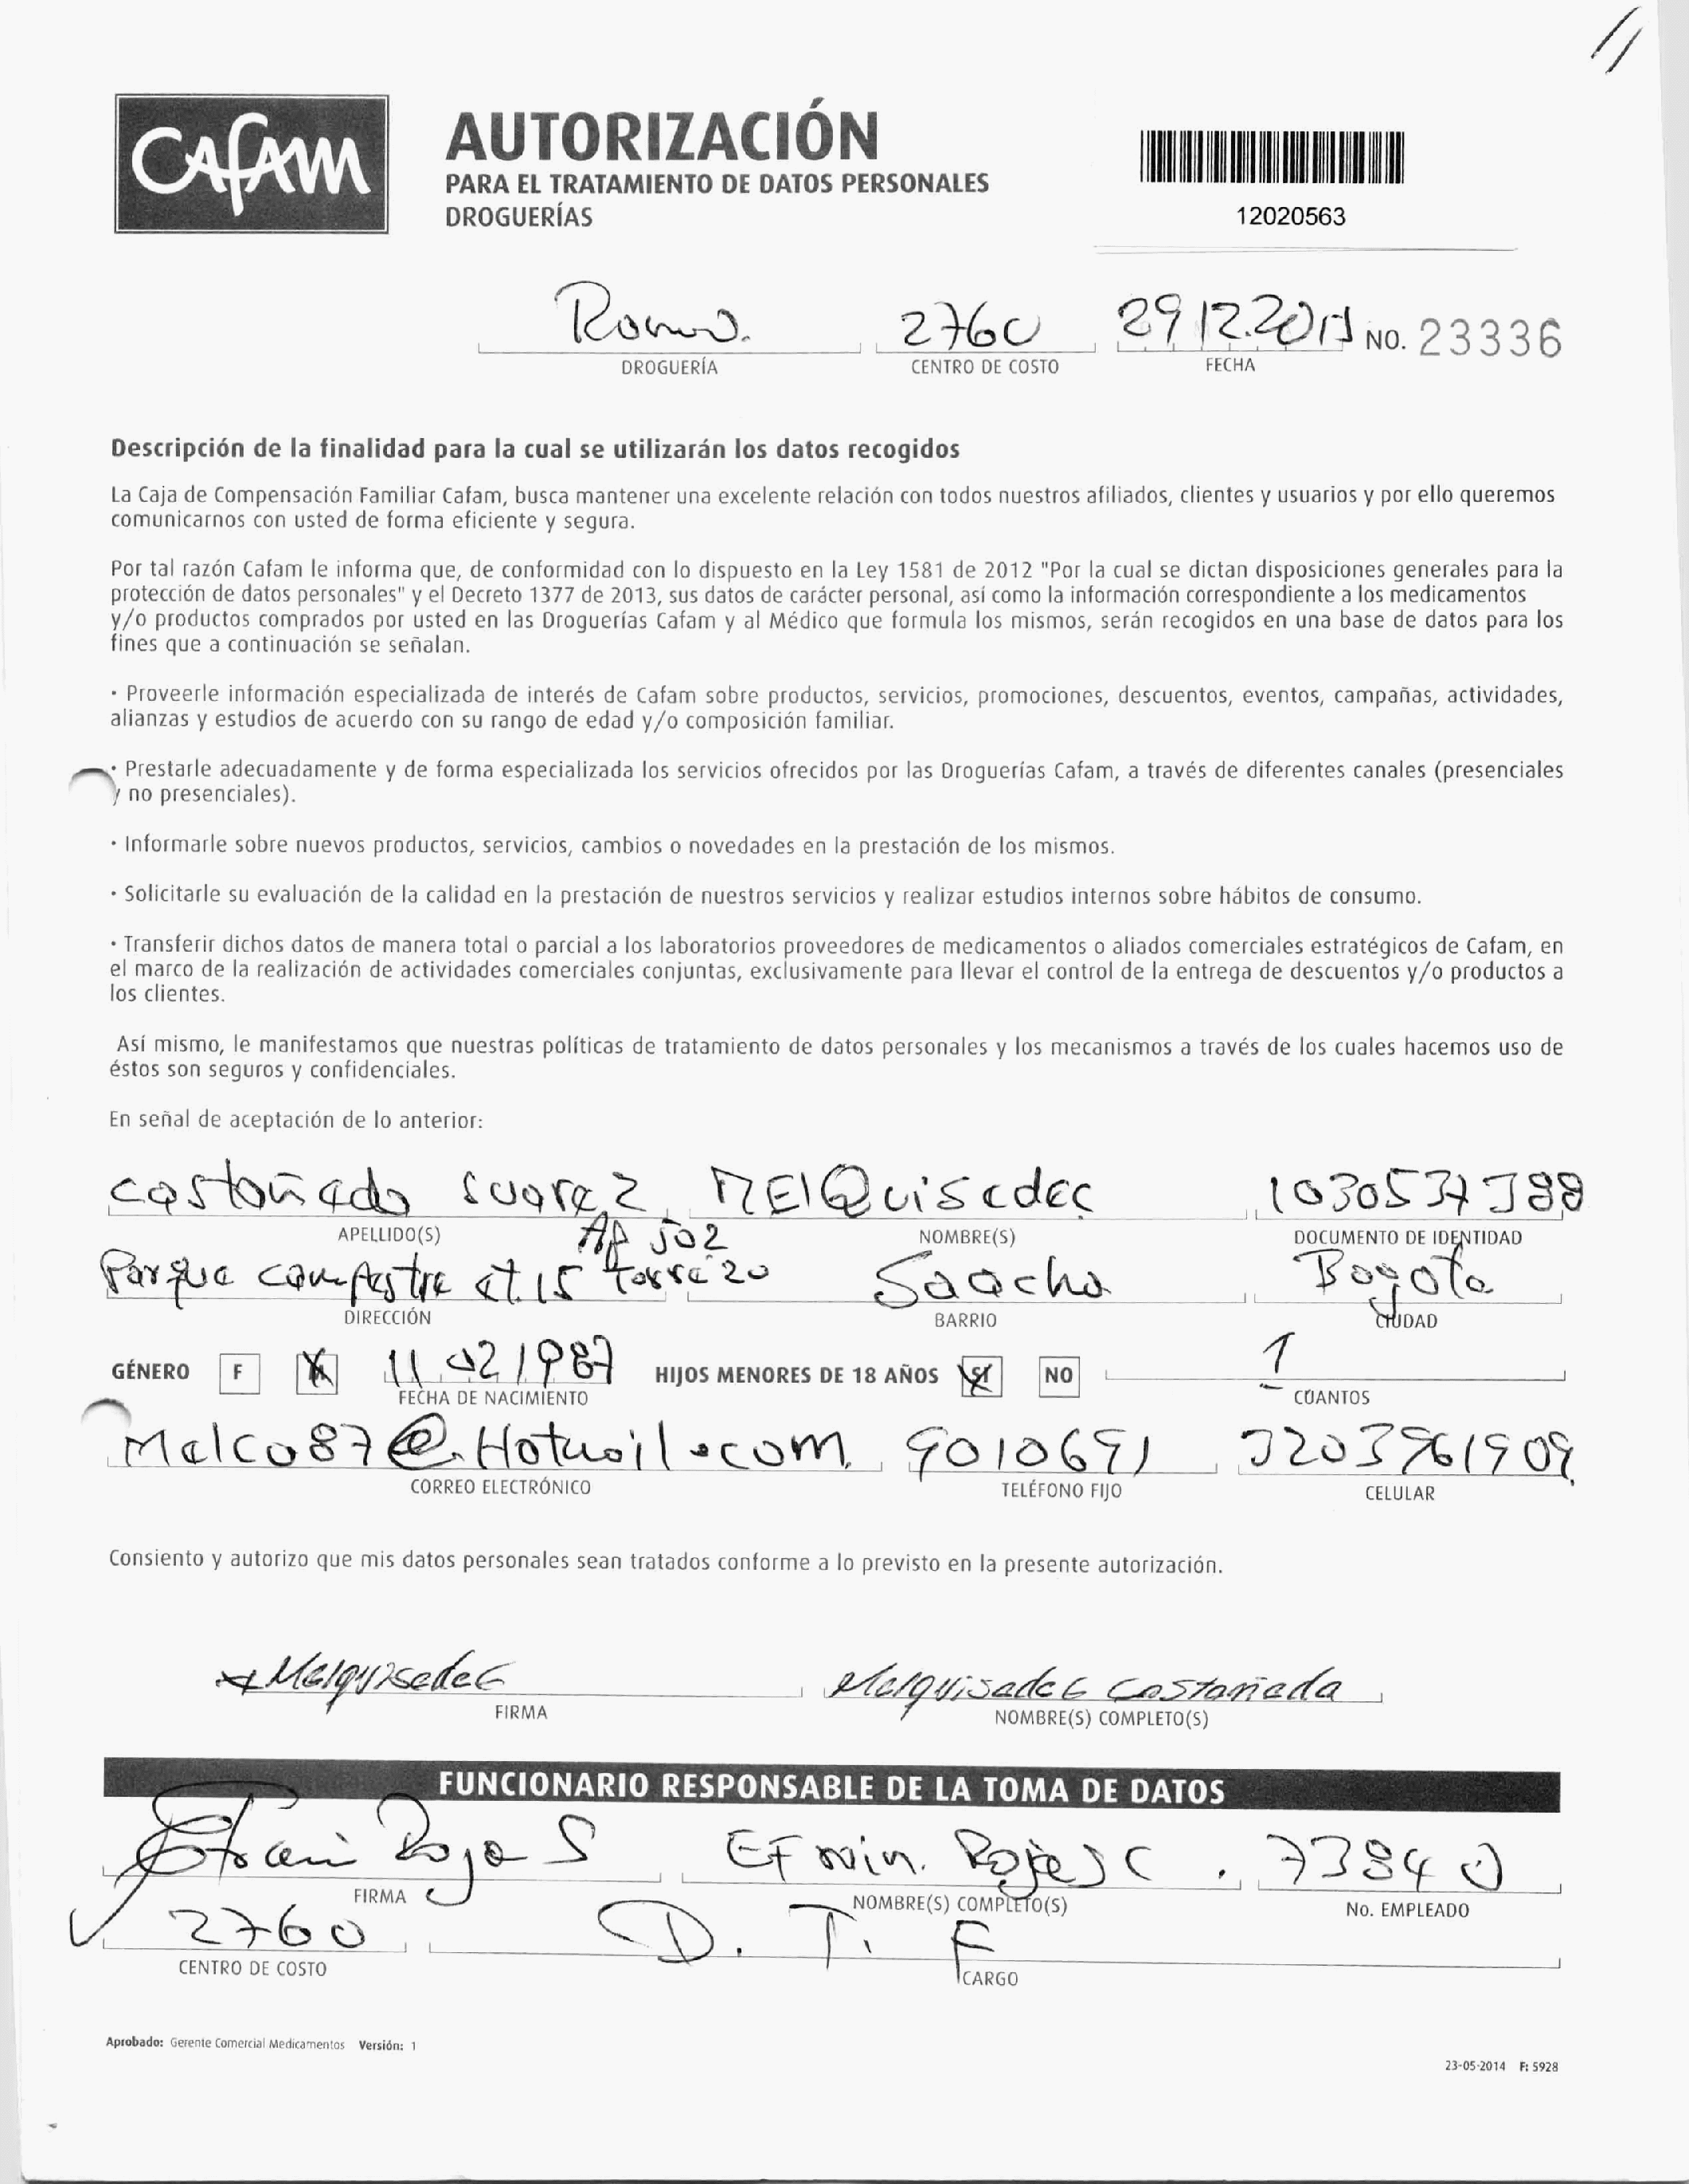 CAFAM
AUTORIZACIÓN
PARA EL TRATAMIENTO DE DATOS PERSONALES
DROGUERÍAS
12020563
2760
DROGUERÍA CENTRO DE COSTO FECHA NO. 23336
Descripción de la finalidad para la cual se utilizarán los datos recogidos
La Caja de Compensación Familiar Cafam, busca mantener una excelente relación con todos nuestros afiliados, clientes y usuarios y por ello queremos
comunicarnos con usted de forma eficiente y segura.
Por tal razón Cafam le informa que, de conformidad con lo dispuesto en la Ley 1581 de 2012 "Por la cual se dictan disposiciones generales para la
protección de datos personales" y el Decreto 1377 de 2013, sus datos de carácter personal, así como la información correspondiente a los medicamentos
y/o productos comprados por usted en las Droguerías Cafam y al Médico que formula los mismos, serán recogidos en una base de datos para los
fines que a continuación se señalan.
· Proveerle información especializada de interés de Cafam sobre productos, servicios, promociones, descuentos, eventos, campañas, actividades,
alianzas y estudios de acuerdo con su rango de edad y/o composición familiar.
· Prestarle adecuadamente y de forma especializada los servicios ofrecidos por las Droguerías Cafam, a través de diferentes canales (presenciales
y no presenciales).
· Informarle sobre nuevos productos, servicios, cambios o novedades en la prestación de los mismos.
· Solicitarle su evaluación de la calidad en la prestación de nuestros servicios y realizar estudios internos sobre hábitos de consumo.
· Transferir dichos datos de manera total o parcial a los laboratorios proveedores de medicamentos o aliados comerciales estratégicos de Cafam, en
el marco de la realización de actividades comerciales conjuntas, exclusivamente para llevar el control de la entrega de descuentos y/o productos a
los clientes.
Así mismo, le manifestamos que nuestras políticas de tratamiento de datos personales y los mecanismos a través de los cuales hacemos uso de
éstos son seguros y confidenciales.
En señal de aceptación de lo anterior:
Castañeda Suarez MElQuisedec
APELLIDO(S) NOMBRE(S) DOCUMENTO DE IDENTIDAD
AP 502
Parque campestre et. 15 torre 20 Soacha Bogota
DIRECCIÓN BARRIO CIUDAD
GÉNERO F M 11 02 1987 HIJOS MENORES DE 18 AÑOS SI NO 1
FECHA DE NACIMIENTO CUANTOS
Melco87@Hotmail.com 9010691 3203961909
CORREO ELECTRÓNICO TELÉFONO FIJO CELULAR
Consiento y autorizo que mis datos personales sean tratados conforme a lo previsto en la presente autorización.
Melquisedec Melquisedec Castañeda
FIRMA NOMBRE(S) COMPLETO(S)
FUNCIONARIO RESPONSABLE DE LA TOMA DE DATOS
Efrain Rojas Efrain. Rojas C. 73840
FIRMA NOMBRE(S) COMPLETO(S) No. EMPLEADO
2760 D. T. F
CENTRO DE COSTO CARGO
Aprobado: Gerente Comercial Medicamentos Versión: 1
23-05-2014 F: 5928